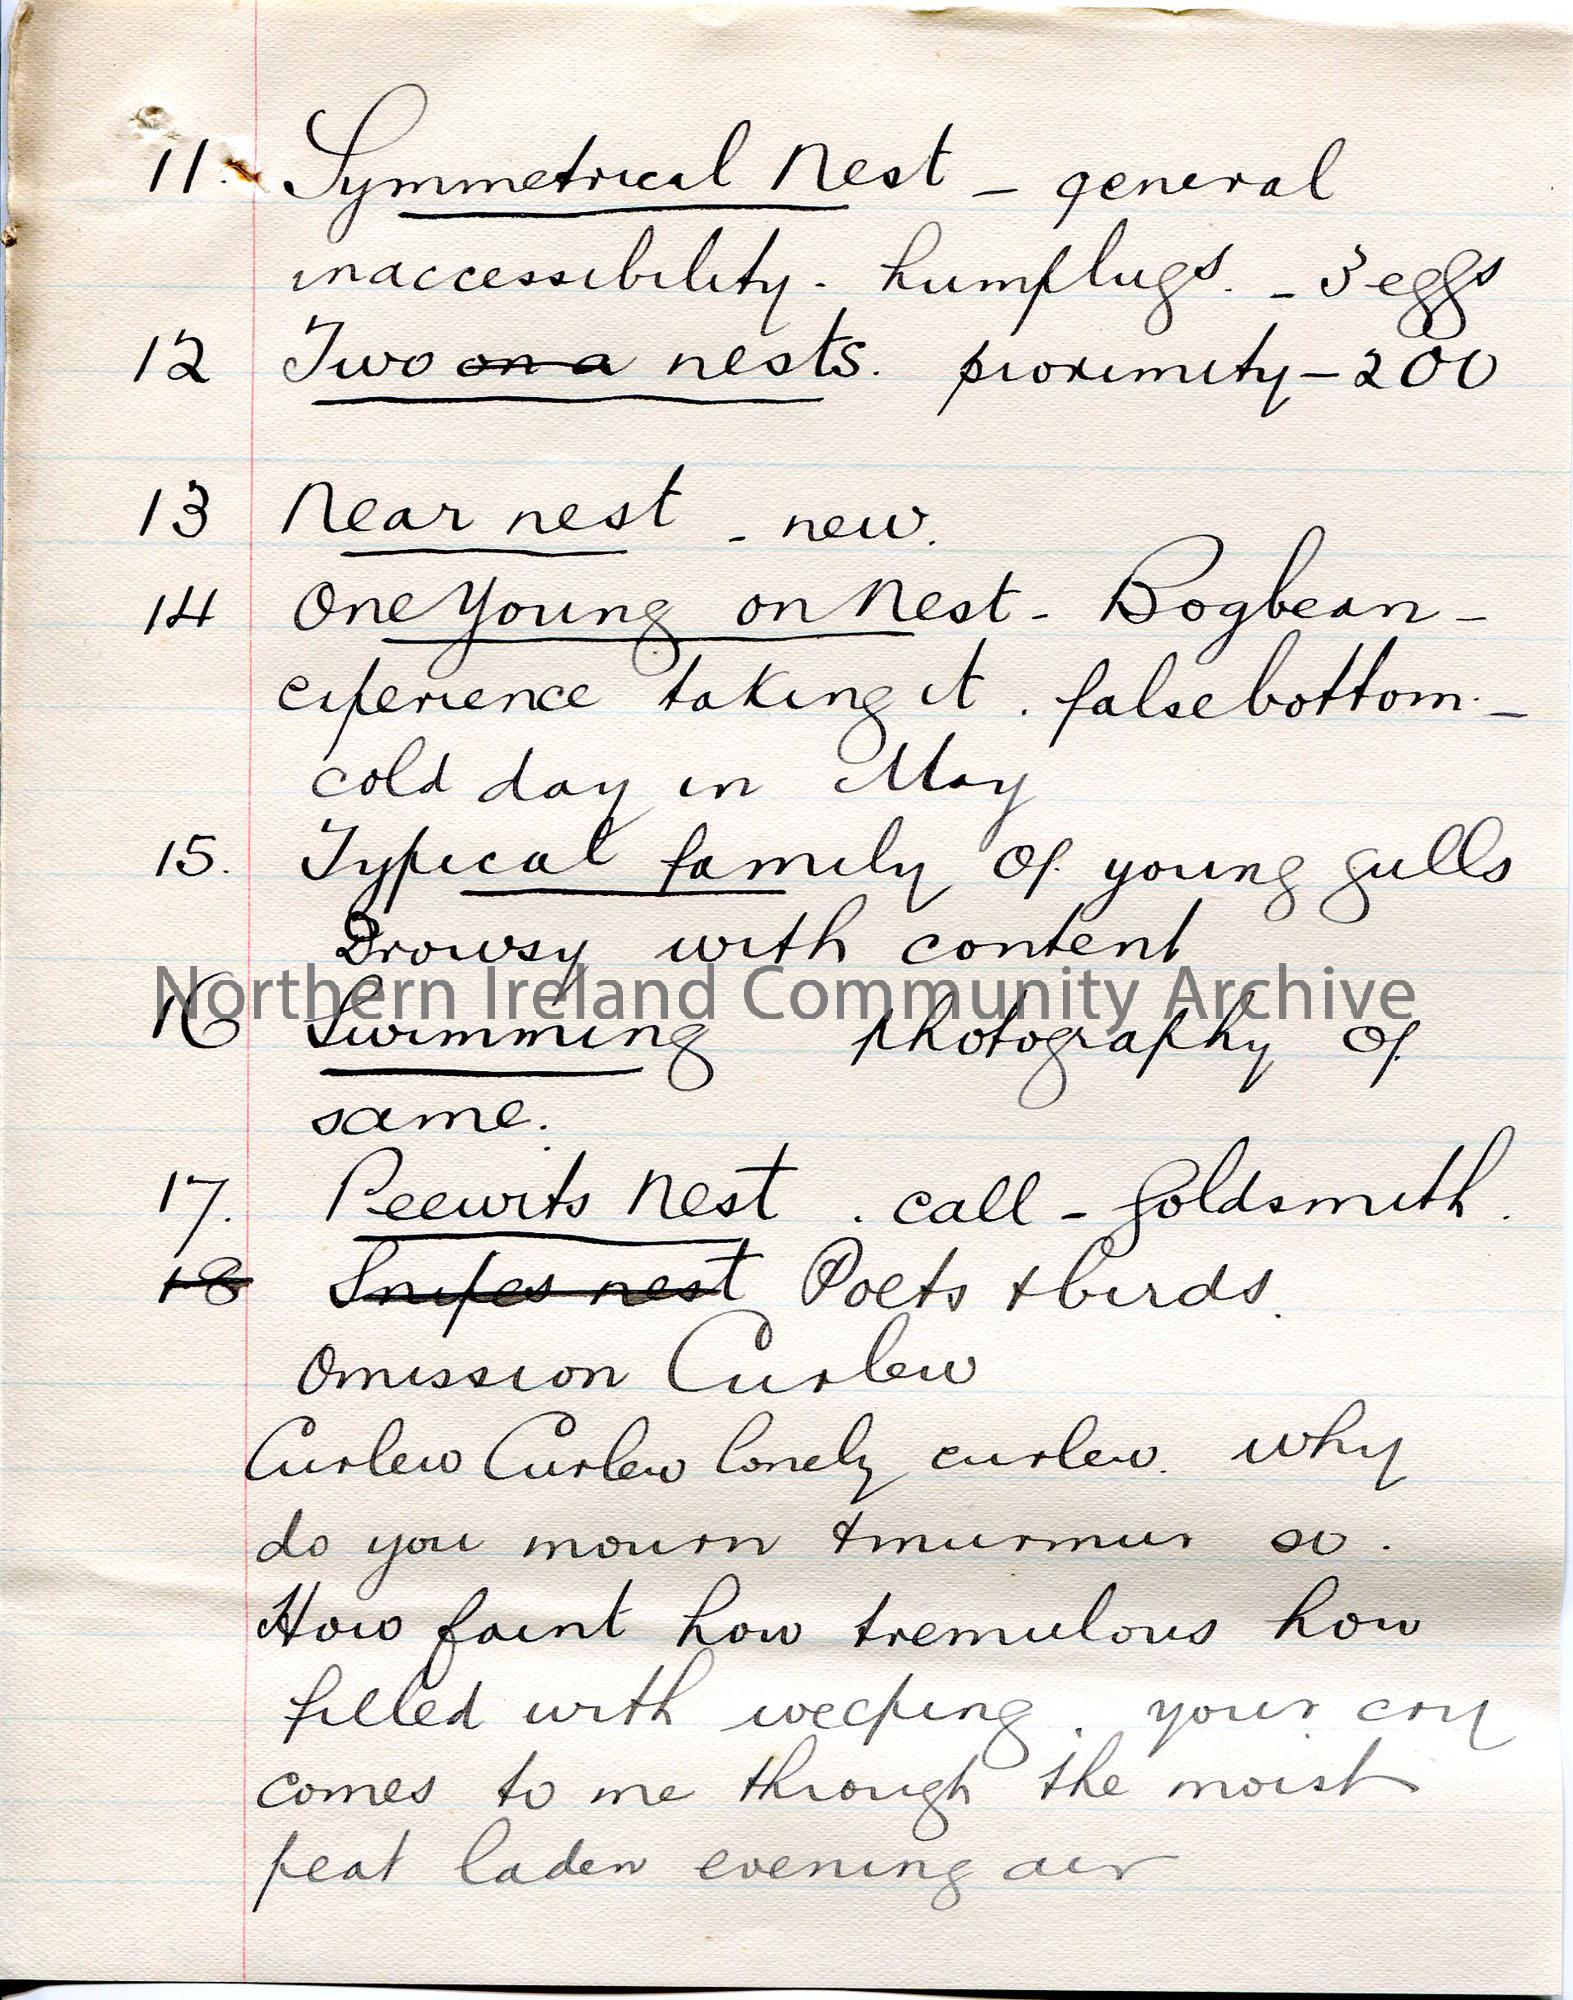 11. Symmetrical Nest – general
inaccessibility. humplugs. – 3 eggs
12 Two on a nests. proximity – 200
13 Near nest – new.
14 One Young on Nest – Bogbean –
experience taking it. false bottom. –
cold day in May
15. Typical family of young gulls
Drowsy with content
Northern Ireland Community Archive
16 Swimming photography of
same.
17. Peewits Nest . call – Goldsmith.
18 Snipes nest Poets + birds.
Omission Curlew
Curlew Curlew lonely curlew. why
do you mourn + murmur so.
How faint how tremulous how
filled with weeping. your cry
comes to me through the moist
peat laden evening air